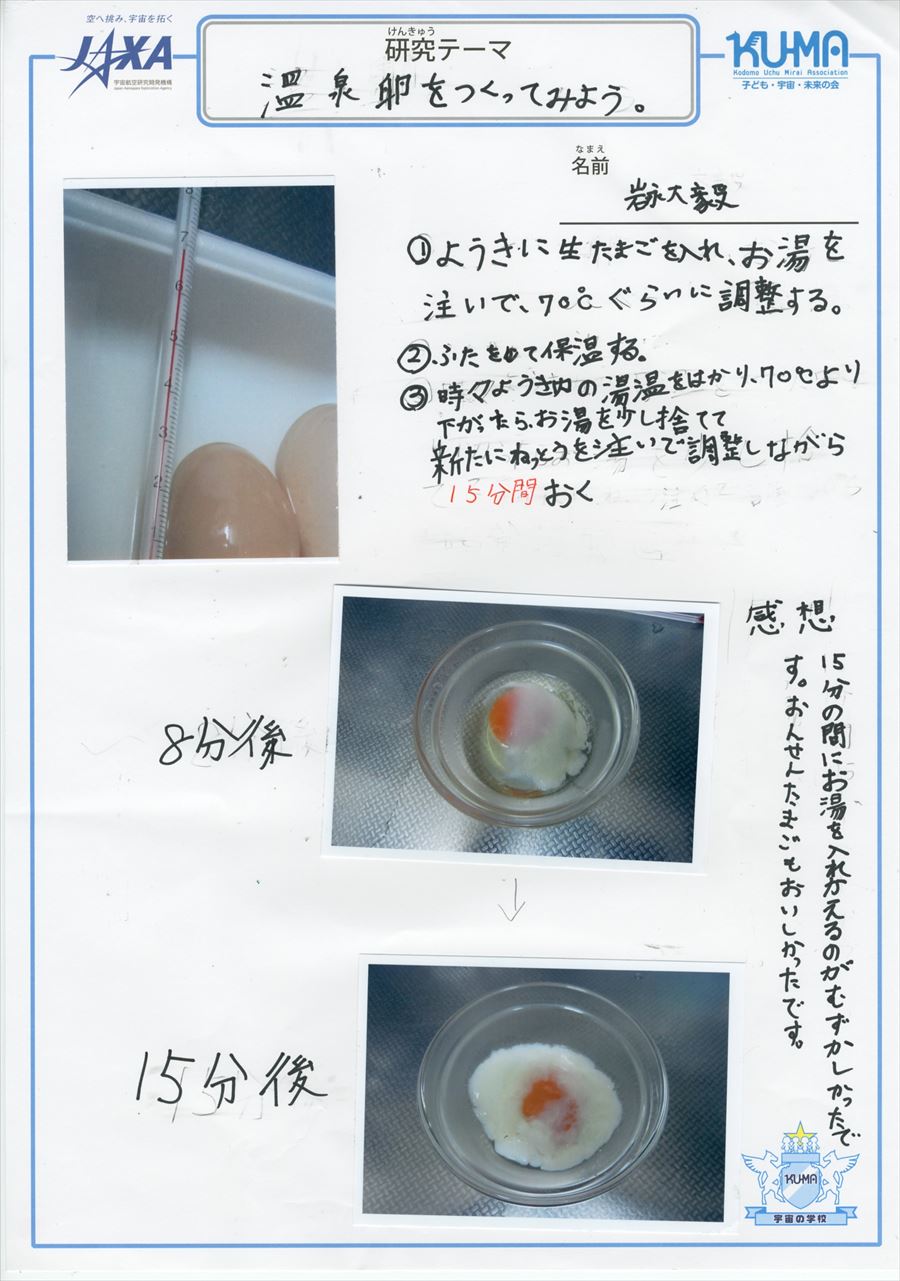 空へ挑み、宇宙を拓く
JAXA
宇宙航空研究開発機構
Japan Aerospace Exploration Agency
けんきゅう
研究テーマ
温泉卵をつくってみよう。
KU-MA
Kodomo Uchu Mirai Association
子ども・宇宙・未来の会
なまえ
名前
岩永大毅
①ようきに生たまごを入れ、お湯を
注いで、70℃ぐらいに調整する。
②.ふたをめて保温する。
③時々ようき内の湯温をはかり、70℃より
下がったら、お湯を少し捨てて
新たにねっとうを注いで調整しながら
15分間おく
8
7
6
5
4
3
2
1
感想
15分の間にお湯を入れかえるのがむずかしかったで
す。おんせんたまごもおいしかったです。
8分後
↓
15分後
KU-MA
宇宙の学校